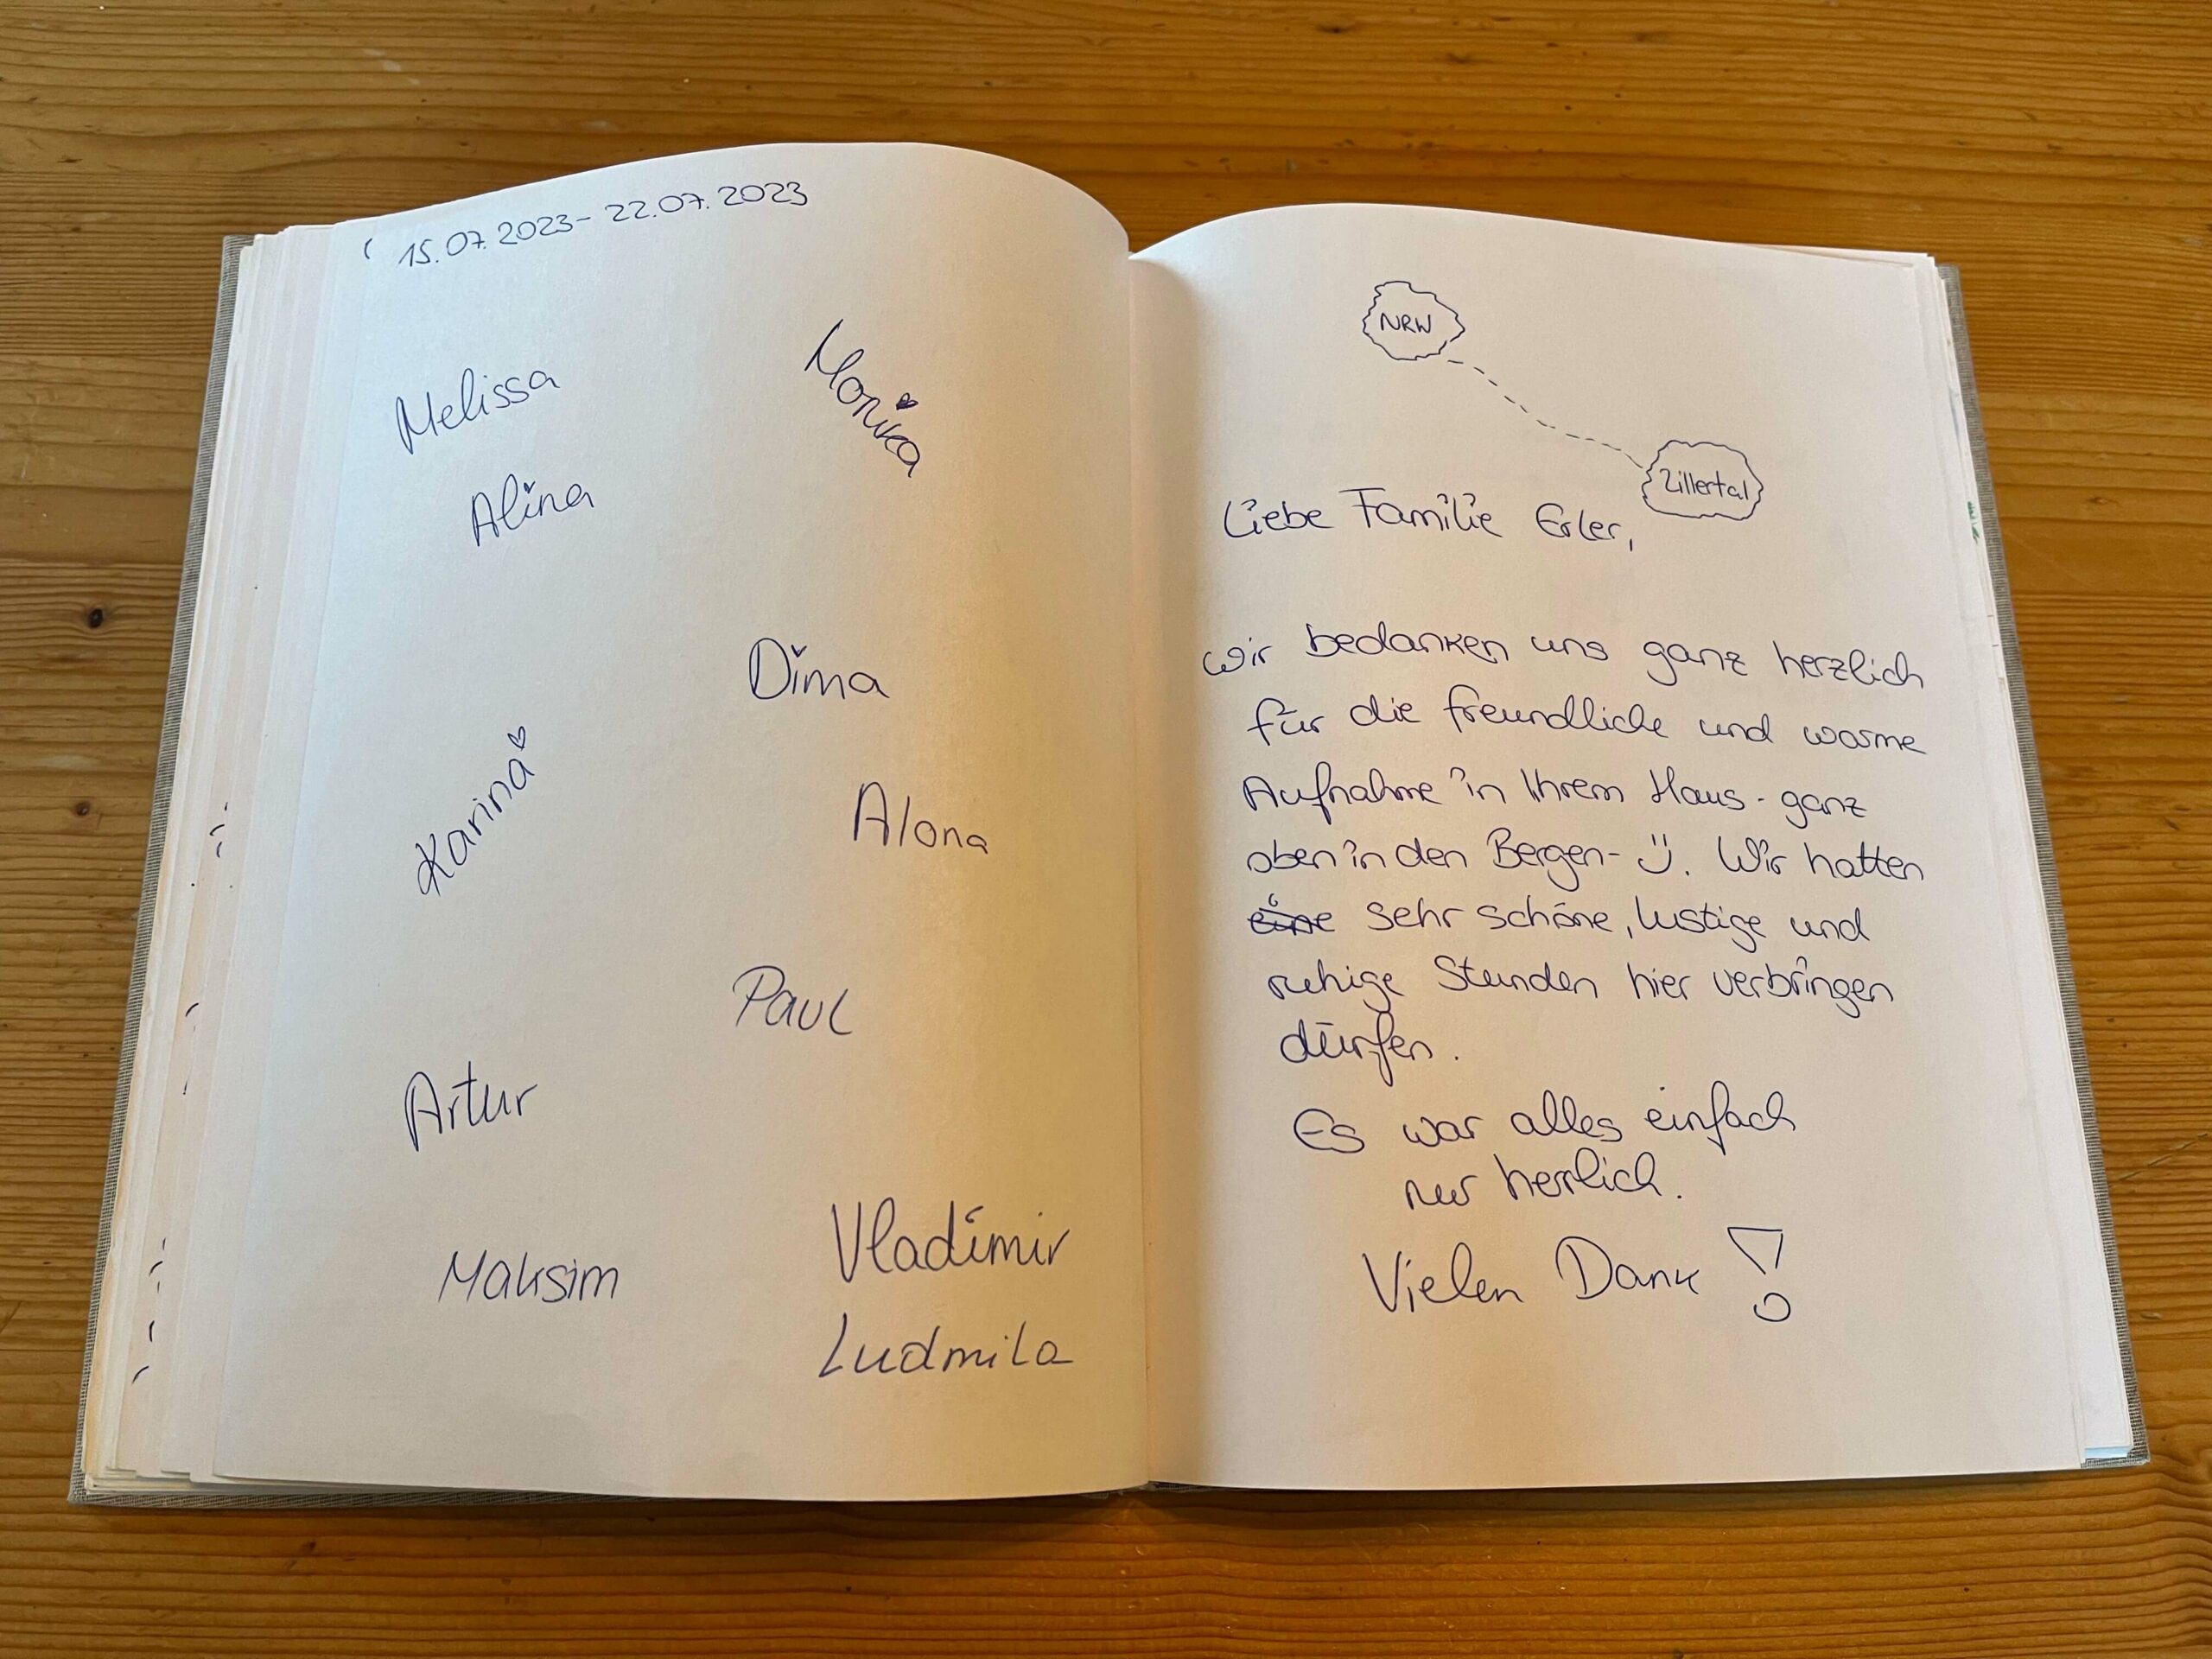 15.07.2023 - 22.07.2023
Melissa
Monika
Alina
Dima
Karina
Alona
Paul
Artur
Maksim
Vladimir
Ludmila
NRW
Zillertal
Liebe Familie Erler,
wir bedanken uns ganz herzlich
für die freundliche und warme
Aufnahme in Ihrem Haus - ganz
oben in den Bergen - Ü. Wir hatten
eine sehr schöne, lustige und
ruhige Stunden hier verbringen
dürfen.
Es war alles einfach
nur herrlich.
Vielen Dank!